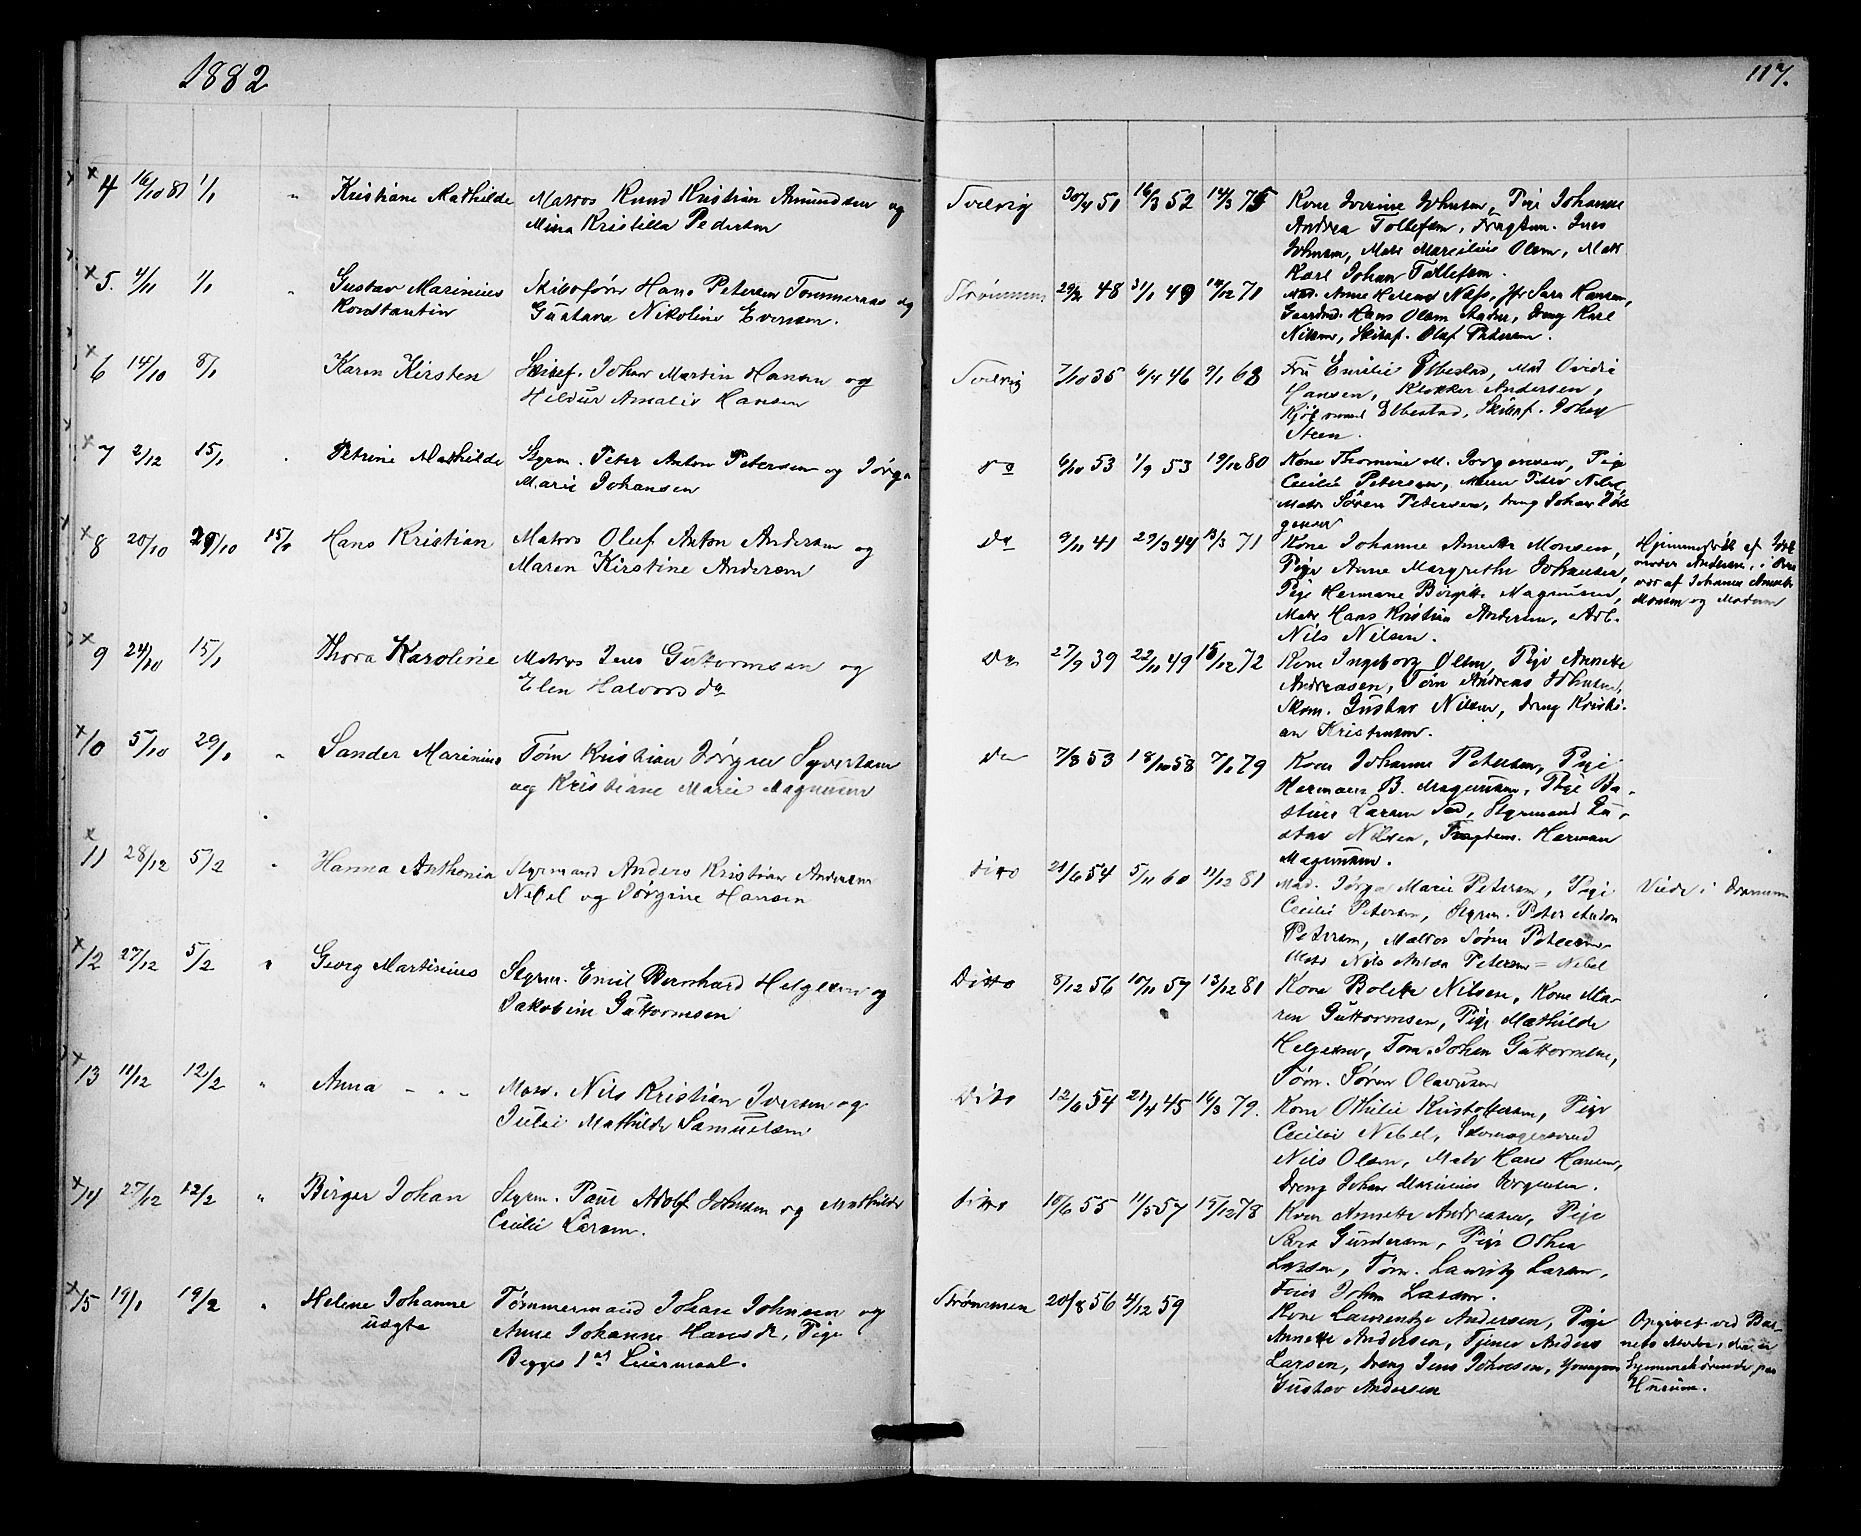 1882
117.
4 16/10 81 1/1 " Kristiane Mathilde Matros Knud Kristian Amundsen og
Mina Kristilla Pedersen
Svelvig 30/4 51 16/3 52 14/3 75 Kone Iverine Johnsen, Pige Johanne
Andrea Tollefsen, Fragtem. Jens
Johnsen, Matr Marcilius Olsen, Matr
Karl Johan Tollefsen.
5. 4/11 1/1 " Gustav Marinius Skibsfører Hans Petersen Tømmeraas og
Konstantin Gustava Nikoline Evensen.
Strømmen 29/2 48 31/1 49 14/12 71 Mad. Anne Helene Næss, Jfr Sara Hansen,
Gaardmd. Hans Olsen, Dreng Karl
Nilsen, Skibsf. Olaf Pedersen.
6 14/10 8/1 Karen Kirsten Skibsf. Johan Martin Hansen og
Hildur Amalie Hansen
Svelvig 7/10 35 6/4 46 9/1 68 Fru Emilie Ellestad, Mad Ovidia
Hansen, Klokker Andersen,
Kjøbmand Ellestad, Skibsf. Johan
Steen.
7 2/12 15/1 " Petrine Mathilde Styrm. Peter Anton Petersen og Jørga
Marie Johansen
do 6/10 53 1/9 53 19/12 80 Kone Thomine M. Jørgensen, Pige
Cecilie Petersen, Peter Nebel,
Matr Søren Petersen, Dreng Johan Jør-
gensen
8 20/10 29/10 15/1 Hans Kristian Matros Oluf Anton Andersen og
Maren Kirstine Andersen
Do 9/11 41 29/3 44 13/3 71 Kone Johanne Annette Monsen,
Pige Anne Margrethe Johansen,
Pige Hermane Birgitte Magnusen,
Matr Hans Kristian Andersen, Arb.
Nils Nilsen.
Hjemmedøbt af Jord-
moder Andersen,
af Johanne Annette
Monsen og Moderen
9 24/10 15/1 Thora Karoline Matros Jens Guttormsen og
Elen Halvorsda
Do 27/9 39 22/11 49 15/12 72 Kone Ingeborg Olsen, Pige Annette
Andreasen, Tøm Andreas Johnsen,
Skom. Gustav Nilsen, Dreng Kristi-
an Kristensen.
10 5/10 29/1 " Sander Marinius Tøm Kristian Jørgen Syvertsen
og Kristiane Marie Magnusen
Do 7/8 53 18/10 58 7/1 79 Kone Johanne Petersen, Pige
Hermane B. Magnusen, Pige Ba-
stine Larsen, Styrmand Gu-
stav Nilsen, Fragtem. Herman
Magnusen.
11 28/12 5/2 " Hanna Anthonia Styrmand Anders Kristian Andersen
Nebel og Jørgine Hansen
Ditto 21/6 54 5/11 60 11/12 81 Mad. Jørga Marie Petersen, Pige
Cecilie Petersen, Styrm. Peter Anton
Petersen, Matros Søren Petersen,
Matr Nils Anton Petersen = Nebel
Viede i Drammen
12 27/12 5/2 " Georg Martinius Styrm. Emil Bernhard Helgesen og
Jakobine Guttormsen
Ditto 8/12 56 10/11 57 13/12 81 Kone Bolette Nilsen, Kone Ma-
ren Guttormsen, Pige Mathilde
Helgesen, Tøm. Johan Guttormsen,
Tøm. Søren Olavesen
13 11/12 12/2 " Anna - " - Matr. Nils Kristian Iversen og
Julie Mathilde Samuelsen
Ditto 12/6 54 21/4 45 16/3 79. Kone Othilie Kristoffersen, Pige
Cecilie Nebel, Selvmagersvend
Nils Olsen, Matr Hans Hansen,
Dreng Johan Marinius Jørgensen.
14 27/12 12/2 " Birger Johan Styrm. Paul Adolf Johnsen og Mathilde
Cecilie Larsen.
Ditto 10/6 55 11/5 57 15/12 78 Kone Annette Andreasen, Pige
Sara Gundersen, Pige Othea
Larsen, Tøm. Lauritz Larsen,
Feier Johan Larsen.
15 19/1 19/2 " Helene Johanne Tømmermand Johan Johnsen og
uægte Anne Johanne Hansdr, Pige
Begges 1st Leiermaal.
Strømmen 20/8 56 4/12 59
Kone Laurentze Andersen, Pige
Annette Andersen, Tjener Anders
Larsen, Dreng Jens Johnsen, Youngm
Gustav Andersen
Opgivet ved Bar-
nets Moder, der er
hjemmehørende paa
Hurum.